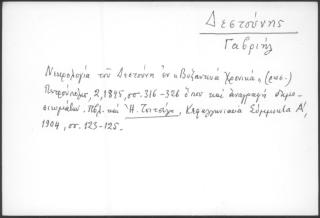 Δεστούνης
Γαβριήλ
Νεκρολογία τοῦ Δεστούνη ἐν «Βυζαντινά Χρονικά» (ρωσ.)
Πετρούπολις, 2, 1895, σσ. 316-326 ὅπου καί ἀναγραφή δημο-
σιευμάτων. Πβλ. καί Ἠ. Τσιτσέλη, Κεφαλληνιακά Σύμμικτα Α',
1904, σσ. 123-125.